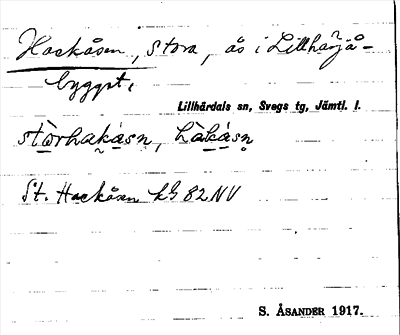 Hackåsen, Stora, ås i Lillhärjå-
bygget.
Lillhärdals sn, Svegs tg, Jämtl. l.
stòrhakàsn, hàkàsn
St. Hackåsen kG 82 NV
S. ÅSANDER 1917.